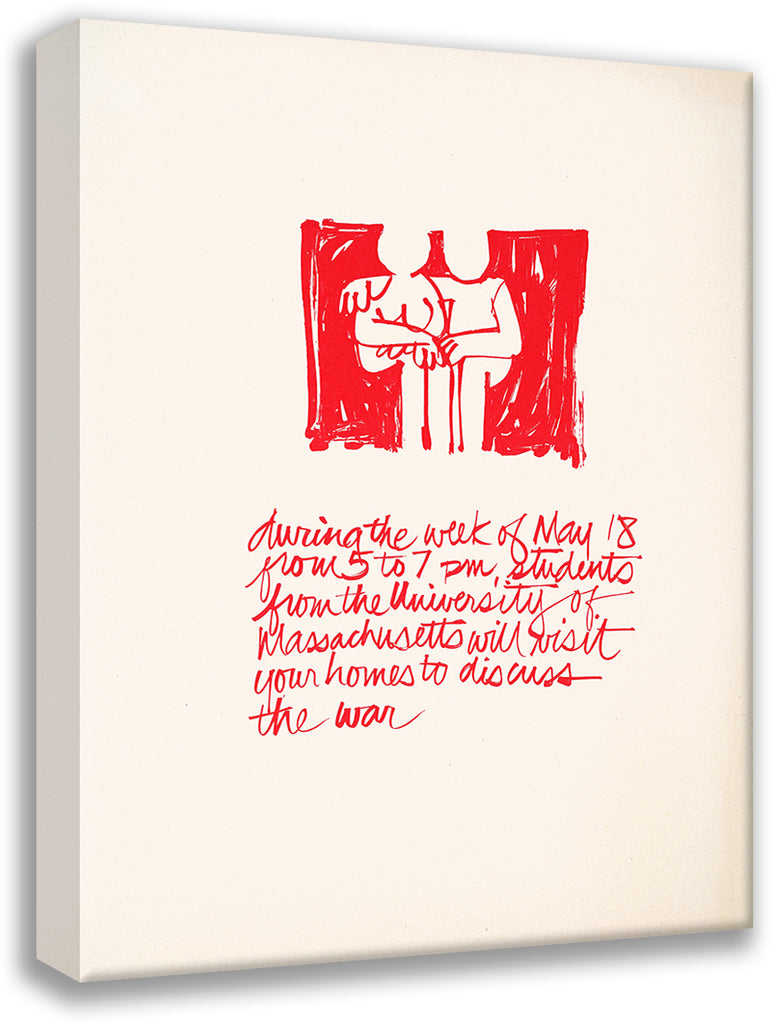 during the week of May 18
from 5 to 7 pm, students
from the University of
Massachusetts will visit
your homes to discuss
the war